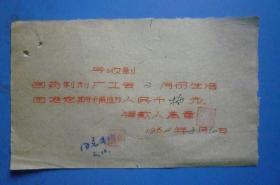 今收到
国药制剂厂工会 2 月份生活
困难定期补助人民币 拾 元
领款人盖章
196 年 2 月 10 日